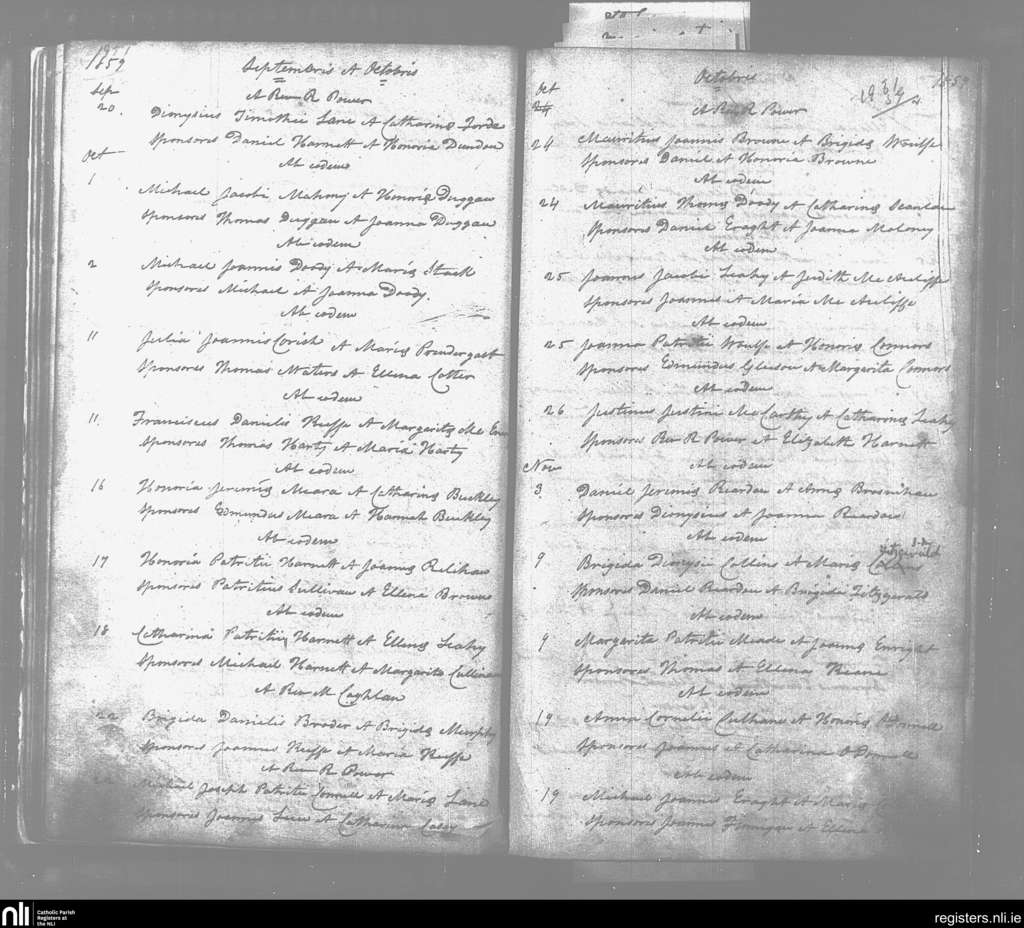 1859
Septembris et Octobris
Sep
A Rev R Power
20. Dionysius Timothei Lane et Catharinæ Forde
Sponsores Daniel Harnett et Honoria Dundon
Ab eodem
Oct
1 Michael Jacobi Mahony et Honoriæ Duggan
Sponsores Thomas Duggan et Joanna Duggan
Ab eodem
2 Michael Joannis Doody et Mariæ Stack
Sponsores Michael et Joanna Doody.
Ab eodem
11 Julia Joannis et Mariæ Prendergast
Sponsores Thomas Waters et Ellena Cotter
Ab eodem
11 Franciscus Danielis Keeffe et Margaritæ Mc
Sponsores Thomas Harty et Maria Harty
Ab eodem
16 Honoria Jeremiæ Meara et Catharinæ Buckley
Sponsores Edmundus Meara et Hannah Buckley
Ab eodem
17 Honoria Patritii Harnett et Joannæ Relihan
Sponsores Patritius Sullivan et Ellena Browne
Ab eodem
18 Catharina Patritii Harnett et Ellenæ Leahy
Sponsores Michael Harnett et Margarita
A Rev M Coghlan
22 Brigida Danielis Broder et Brigidæ Murphy
Sponsores Joannes Keeffe et Maria Keeffe
A Rev R Power
Michael Joseph Patritii Connell et Mariæ Lane
Sponsores Joannes et Catharina
Octobris
1859
Oct
A Rev R Power
24 Mauritius Joannis Browne et Brigidæ Woulfe
Sponsores Daniel et Honoria Browne
Ab eodem
24 Mauritius Thomæ Doody et Catharinæ Scanlan
Sponsores Daniel Eraght et Joanna Moloney
Ab eodem
25 Joannes Jacobi Leahy et Judith Mc Auliffe
Sponsores Joannes et Maria Mc Auliffe
Ab eodem
25 Joanna Patritii Woulfe et Honoræ Connors
Sponsores Edmundus Gleeson et Margarita Connors
Ab eodem
26 Justinus Justini McCarthy et Catharinæ Leahy
Sponsores Rev R Power et Elizabeth Harnett
Ab eodem
Nov
3 Daniel Jeremiæ Reardon et Annæ Brosnihan
Sponsores Dionysius et Joanna Reardon
Ab eodem
Fitzgerald
9 Brigida Dionysii Collins et Mariæ Collins
Sponsores Daniel Reardon et Brigida Fitzgerald
Ab eodem
9 Margarita Patritii Meade et Joannæ Enright
Sponsores Thomas et Ellena
Ab eodem
19 Anna Cornelii Culhane et Honoriæ O'Donnell
Sponsores Joannes et Catharina O'Donnell
Ab eodem
19 Michael Joannis Eraght et Mariæ
Sponsores Joannes Finnegan et Ellena
nli
Catholic Parish
Registers at
the NLI
registers.nli.ie